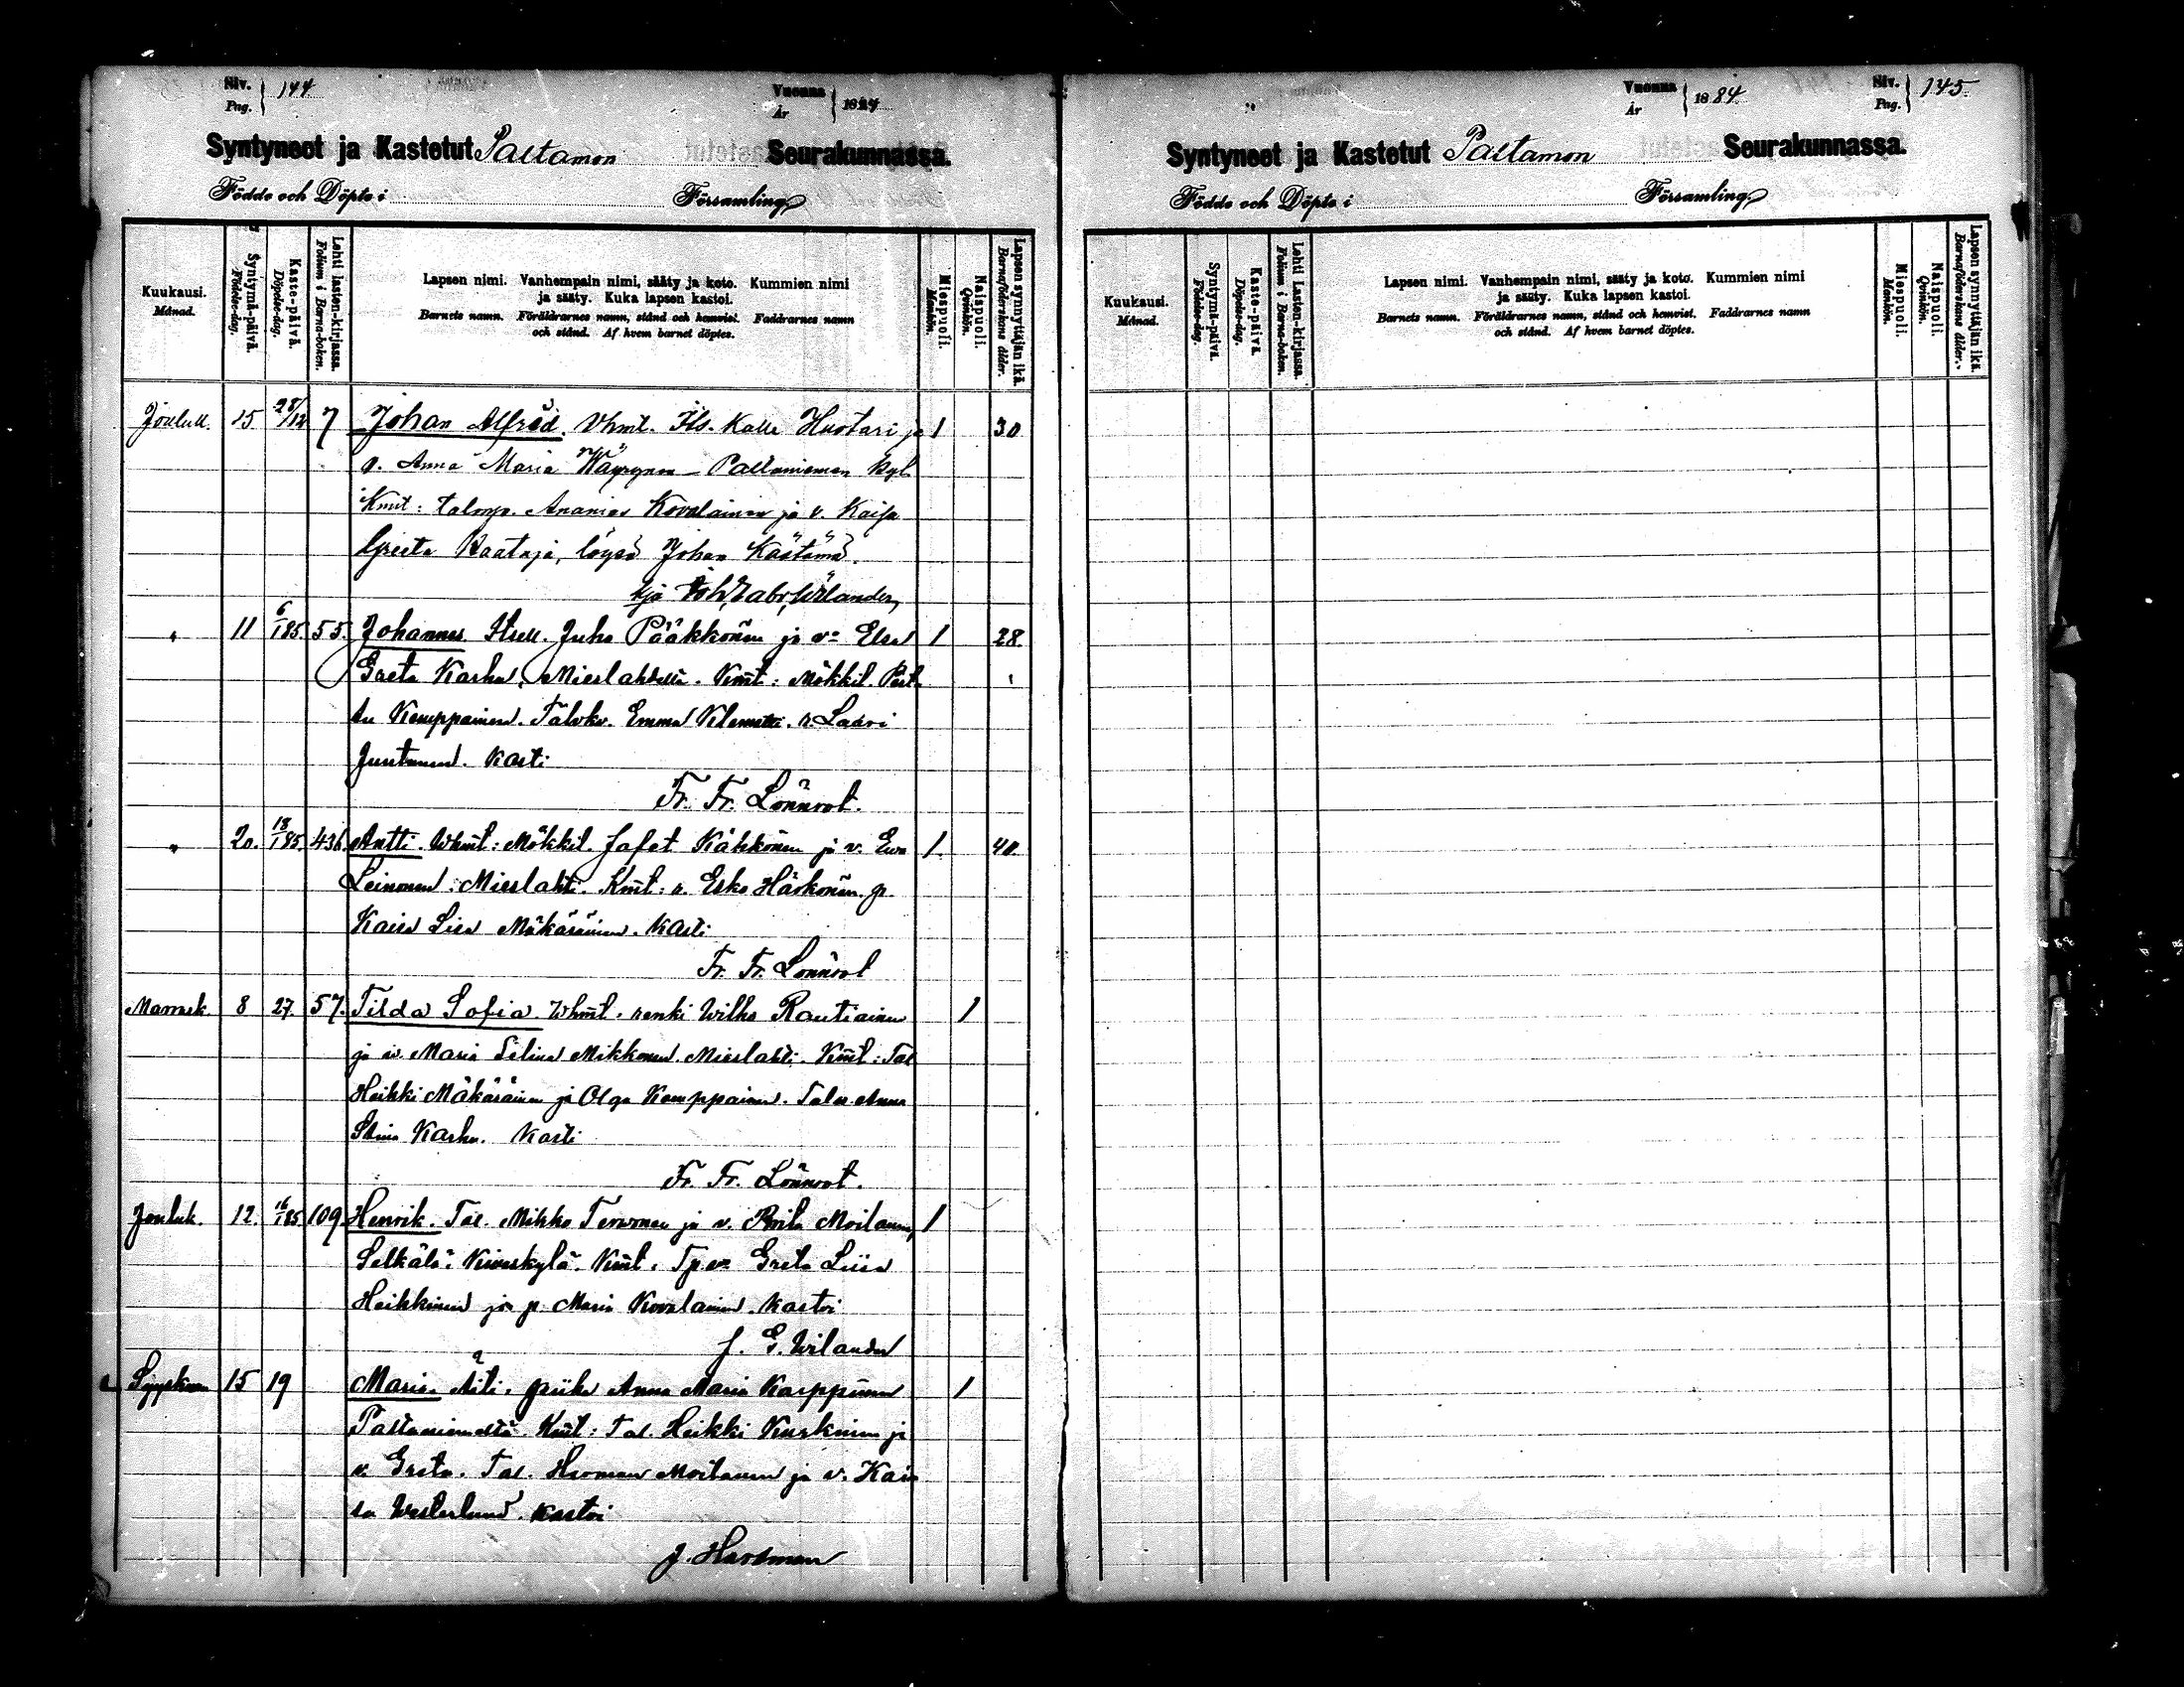 Siv.
Pag. 144
Vuonna
År 1884
Syntyneet ja Kastetut Paltamon Seurakunnassa.
Födde och Döpte i Församling
Kuukausi.
Månad.
Syntymä-päivä.
Födelse-dag.
Kaste-päivä.
Döpelse-dag.
Lehti lasten-kirjassa.
Folium i Barna-boken.
Lapsen nimi. Vanhempain nimi, sääty ja koto. Kummien nimi
ja sääty. Kuka lapsen kastoi.
Barnets namn. Föräldrarnes namn, stånd och hemvist. Faddrarnes namn
och stånd. Af hvem barnet döptes.
Miespuoli.
Mankön.
Naispuoli.
Qvinkön.
Lapsen synnyttäjän ikä.
Barnaföderskans ålder.
Jouluk. 15. 28/12 7 Johan Alfred. Vhmt. Its. Kalle Huotari ja 1 30
v. Anna Maria Wäyrynen Paltaniemen kyl.
Kmit: talonp. Ananias Kovalainen ja v. Kaisa
Greeta Raataja, löysä Johan Kästämä.
kja Joh. Gabr. Wilander,
" 11 6/1 85. 55. Johannes. Itsell. Juho Pääkkönen ja v:o Elsa 1 28.
Greta Karhu, Mieslahdella. Kmt: Mökkil. Pert-
tu Kemppainen. Talokv. Emma Klemetti. r. Laari
Juntunen. Kasti
Fr. Fr. Lönnrot.
" 20. 18/1 85. 436. Antti. Whmt: Mökkil. Jafet Käkkönen ja v. Ewa 1. 40.
Leinonen. Mieslahti. Kmt: r. Esko Härkönen. p.
Kaisa Lisa Mäkäräinen. Kasti
Fr. Fr. Lönnrot
Marrask. 8 27. 57. Tilda Sofia. Whmt. renki Wilho Rautiainen 1
ja w. Maria Selina Mikkonen. Mieslahti. Kmt: Tal
Heikki Mäkäräinen ja Olga Kemppainen. Anna
Stina Karhu. Kasti
Fr. Fr. Lönnrot.
Jouluk. 12. 16/1 85 109 Henrik. Tal. Mikko Terwonen ja v. Brita Moilanen, 1
Selkälä. Kiweskylä. Kmt. Greta Liisa
Heikkinen ja p. Maria Kovalainen. Kastoi
J. G. Wilander
Syyskuu 15 19 Maria. Äiti, piika Anna Maria Karppinen 1
Paltaniemeltä. Kmt: Tal. Heikki Kurkinen ja
v. Greta. Tal. Herman Moilanen ja v. Kai-
sa Westerlund. Kastoi
J. Hartman
Vuonna
År 1884.
Siv.
Pag. 145.
Syntyneet ja Kastetut Paltamon Seurakunnassa.
Födde och Döpte i Församling
Kuukausi.
Månad.
Syntymä-päivä.
Födelse-dag.
Kaste-päivä.
Döpelse-dag.
Lehti Lasten-kirjassa.
Folium i Barna-boken.
Lapsen nimi. Vanhempain nimi, sääty ja koto. Kummien nimi
ja sääty. Kuka lapsen kastoi.
Barnets namn. Föräldrarnes namn, stånd och hemvist. Faddrarnes namn
och stånd. Af hvem barnet döptes.
Miespuoli.
Mankön.
Naispuoli.
Qvinkön.
Lapsen synnyttäjän ikä.
Barnaföderskans ålder.